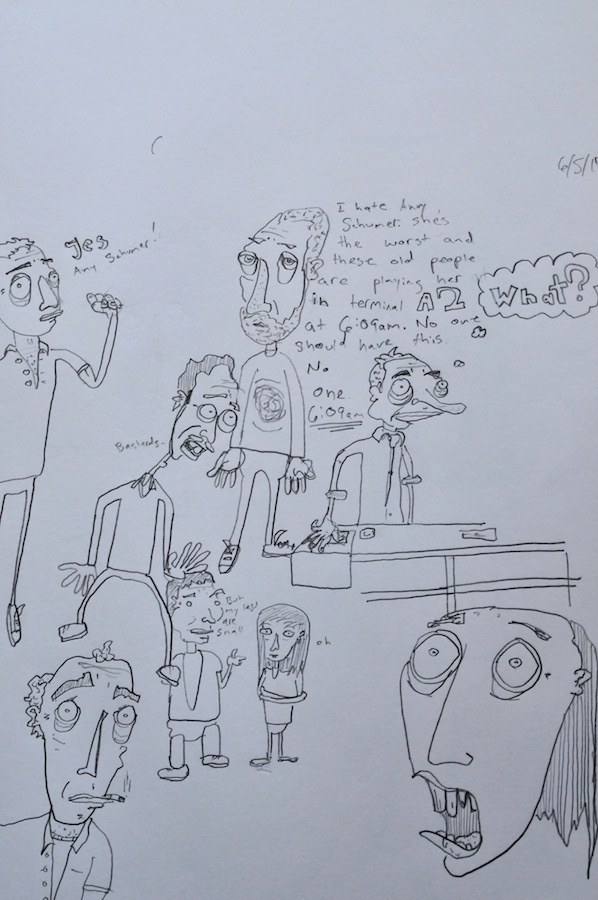 6/5/1
Yes
Amy Schumer!
I hate Amy
Schumer. She's
the worst and
these old people
are playing her
in terminal A2
at 6:09am. No one
should have this.
No
one
6:09am
What?
Bastards.
But
my legs
are
small
oh